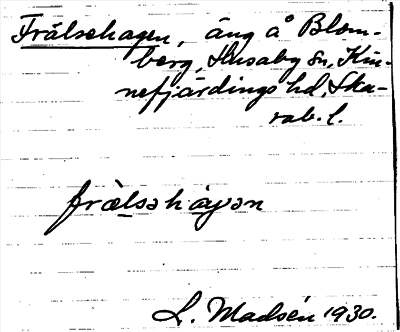 Frälsehagen, äng å Blom-
berg, Husaby sn, Kin-
nefjärdings hd, Ska-
rab. l.
frälsəhaɡən
L. Madsén 1930.